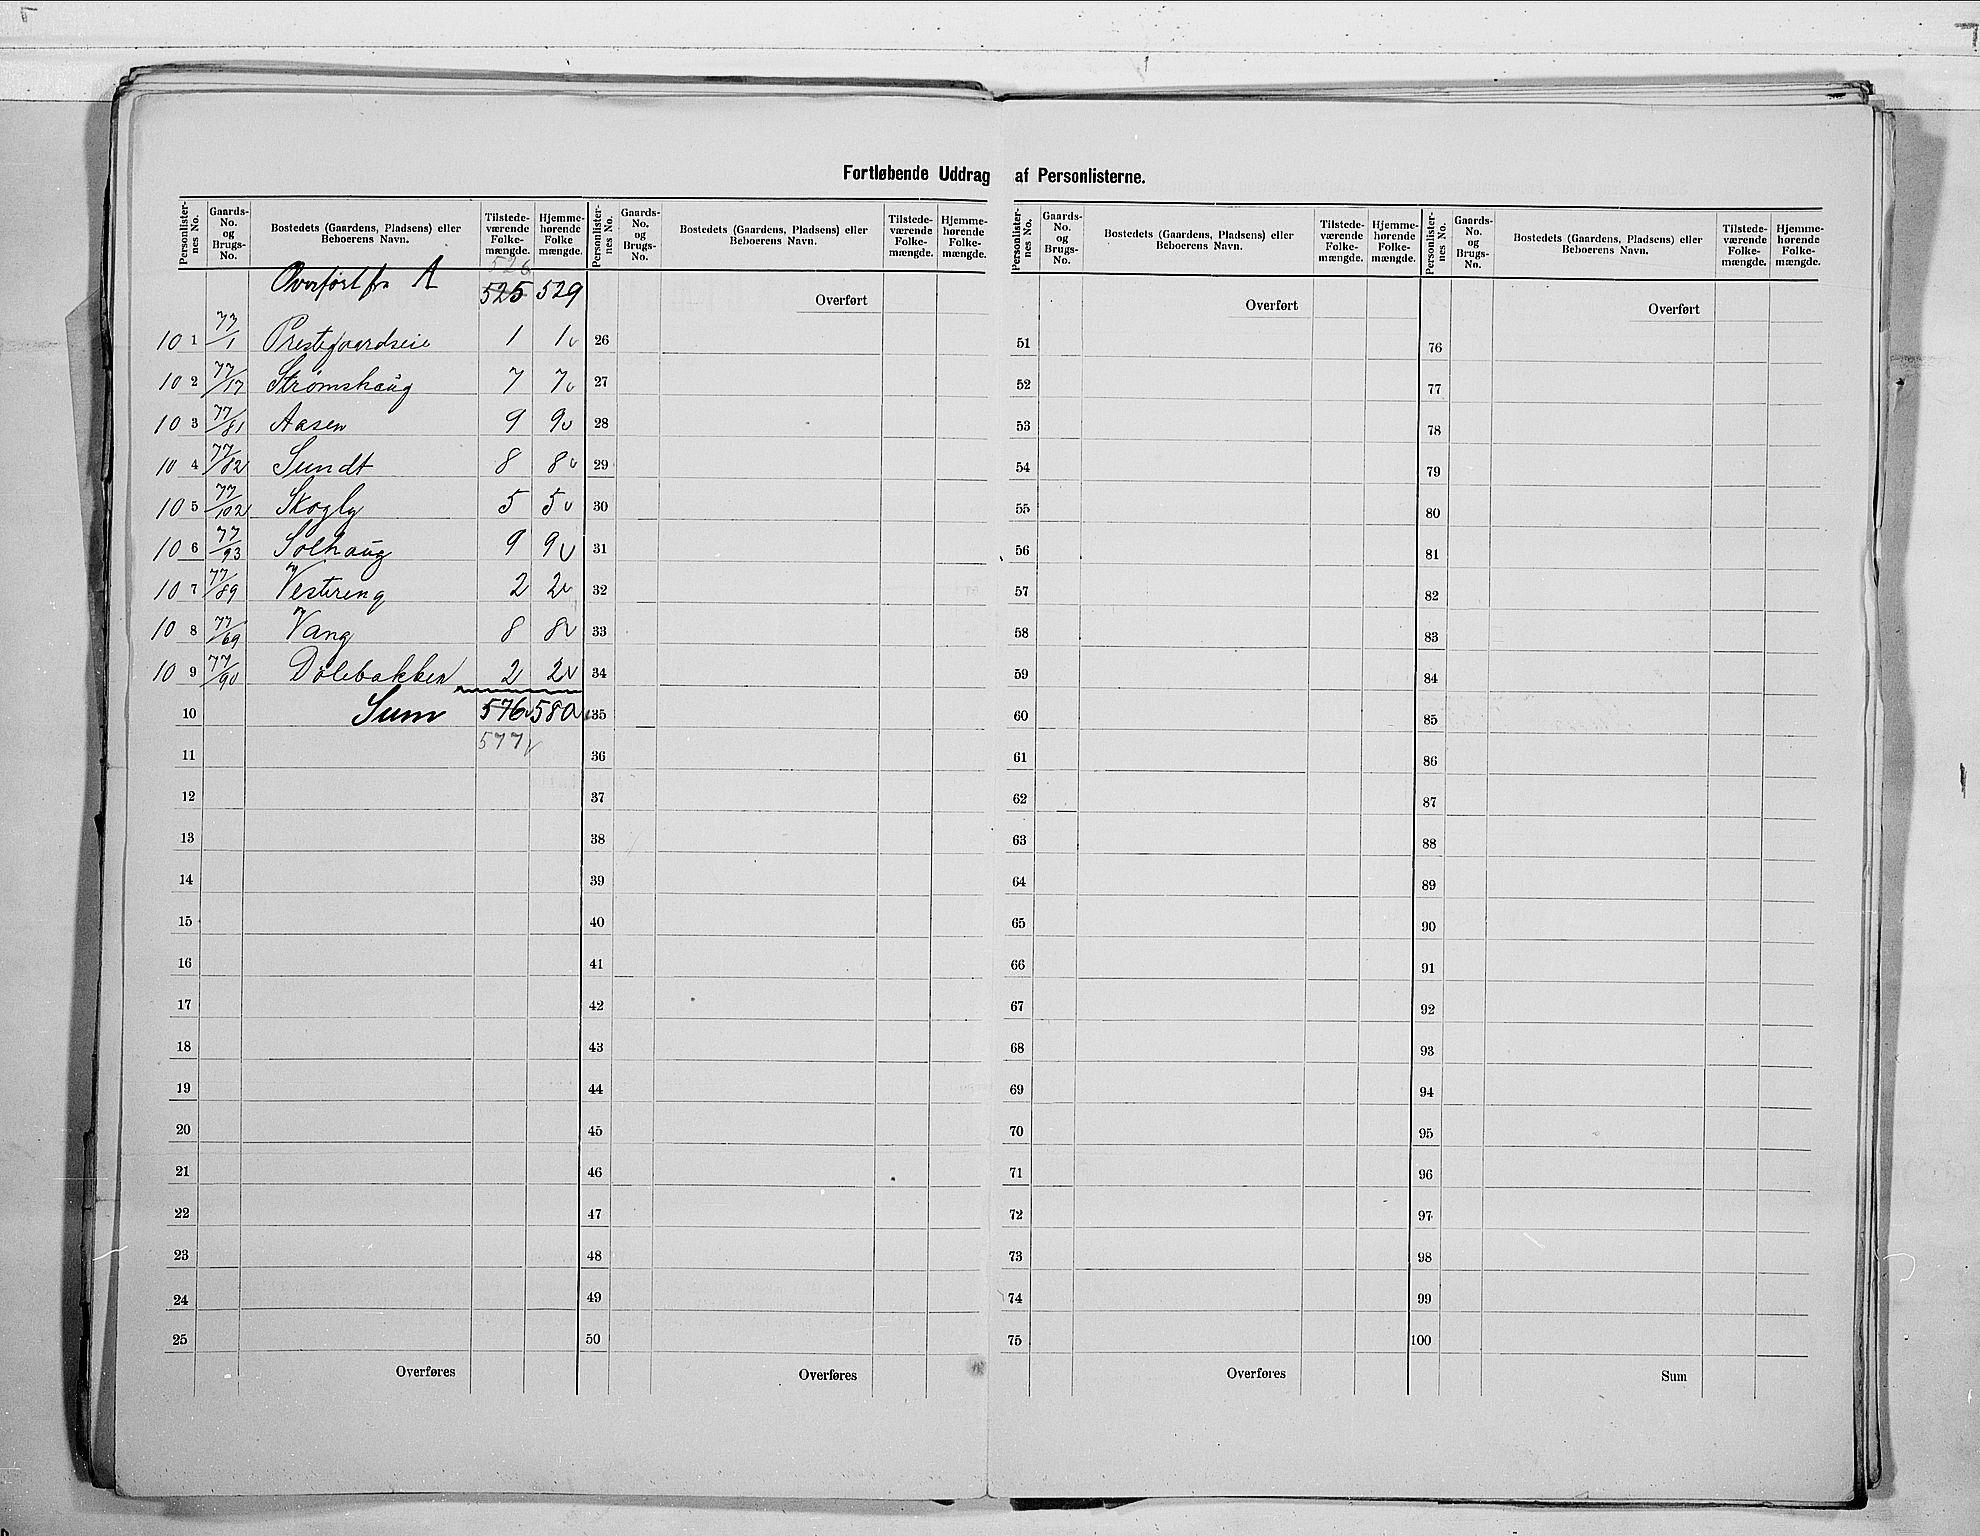 Fortløbende Uddrag af Personlisterne.
Personlister-nes No. | Gaards-No. og Brugs-No. | Bostedets (Gaardens, Pladsens) eller Beboerens Navn. | Tilstede-værende Folke-mængde. | Hjemme-hørende Folke mængde.
Overført fra A 526
525 529
10 1 77/1 Prestegaardseie 1 1 v
10 2 77/17 Strømshaug 7 7 v
10 3 77/81 Aasen 9 9 v
10 4 77/82 Sundt 8 8 v
10 5 77/102 Skogly 5 5 v
10 6 77/93 Solhaug 9 9 v
10 7 77/89 Vestereng 2 2 v
10 8 77/69 Vang 8 8 v
10 9 77/90 Dølebakken 2 2 v
10 Sum 576 v 580 v
577 v
11
12
13
14
15
16
17
18
19
20
21
22
23
24
25
Overføres
Personlister-nes No. | Gaards-No. og Brugs-No. | Bostedets (Gaardens, Pladsens) eller Beboerens Navn. | Tilstede-værende Folke-mængde. | Hjemme-hørende Folke-mængde.
Overført
26
27
28
29
30
31
32
33
34
35
36
37
38
39
40
41
42
43
44
45
46
47
48
49
50
Overføres
Personlister-nes No. | Gaards-No. og Brugs-No. | Bostedets (Gaardens, Pladsens) eller Beboerens Navn. | Tilstede-værende Folke-mængde. | Hjemme-hørende Folke-mængde.
Overført
51
52
53
54
55
56
57
58
59
60
61
62
63
64
65
66
67
68
69
70
71
72
73
74
75
Overføres
Personlister-nes No. | Gaards-No. og Brugs-No. | Bostedets (Gaardens, Pladsens) eller Beboerens Navn. | Tilstede-værende Folke-mængde. | Hjemme-hørende Folke-mængde.
Overført
76
77
78
79
80
81
82
83
84
85
86
87
88
89
90
91
92
93
94
95
96
97
98
99
100
Sum